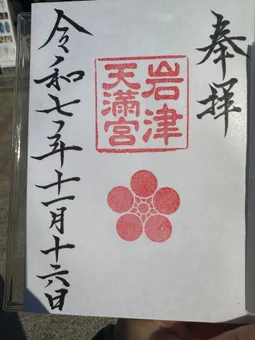 奉拝
岩津
天満宮
令和七年十一月十六日